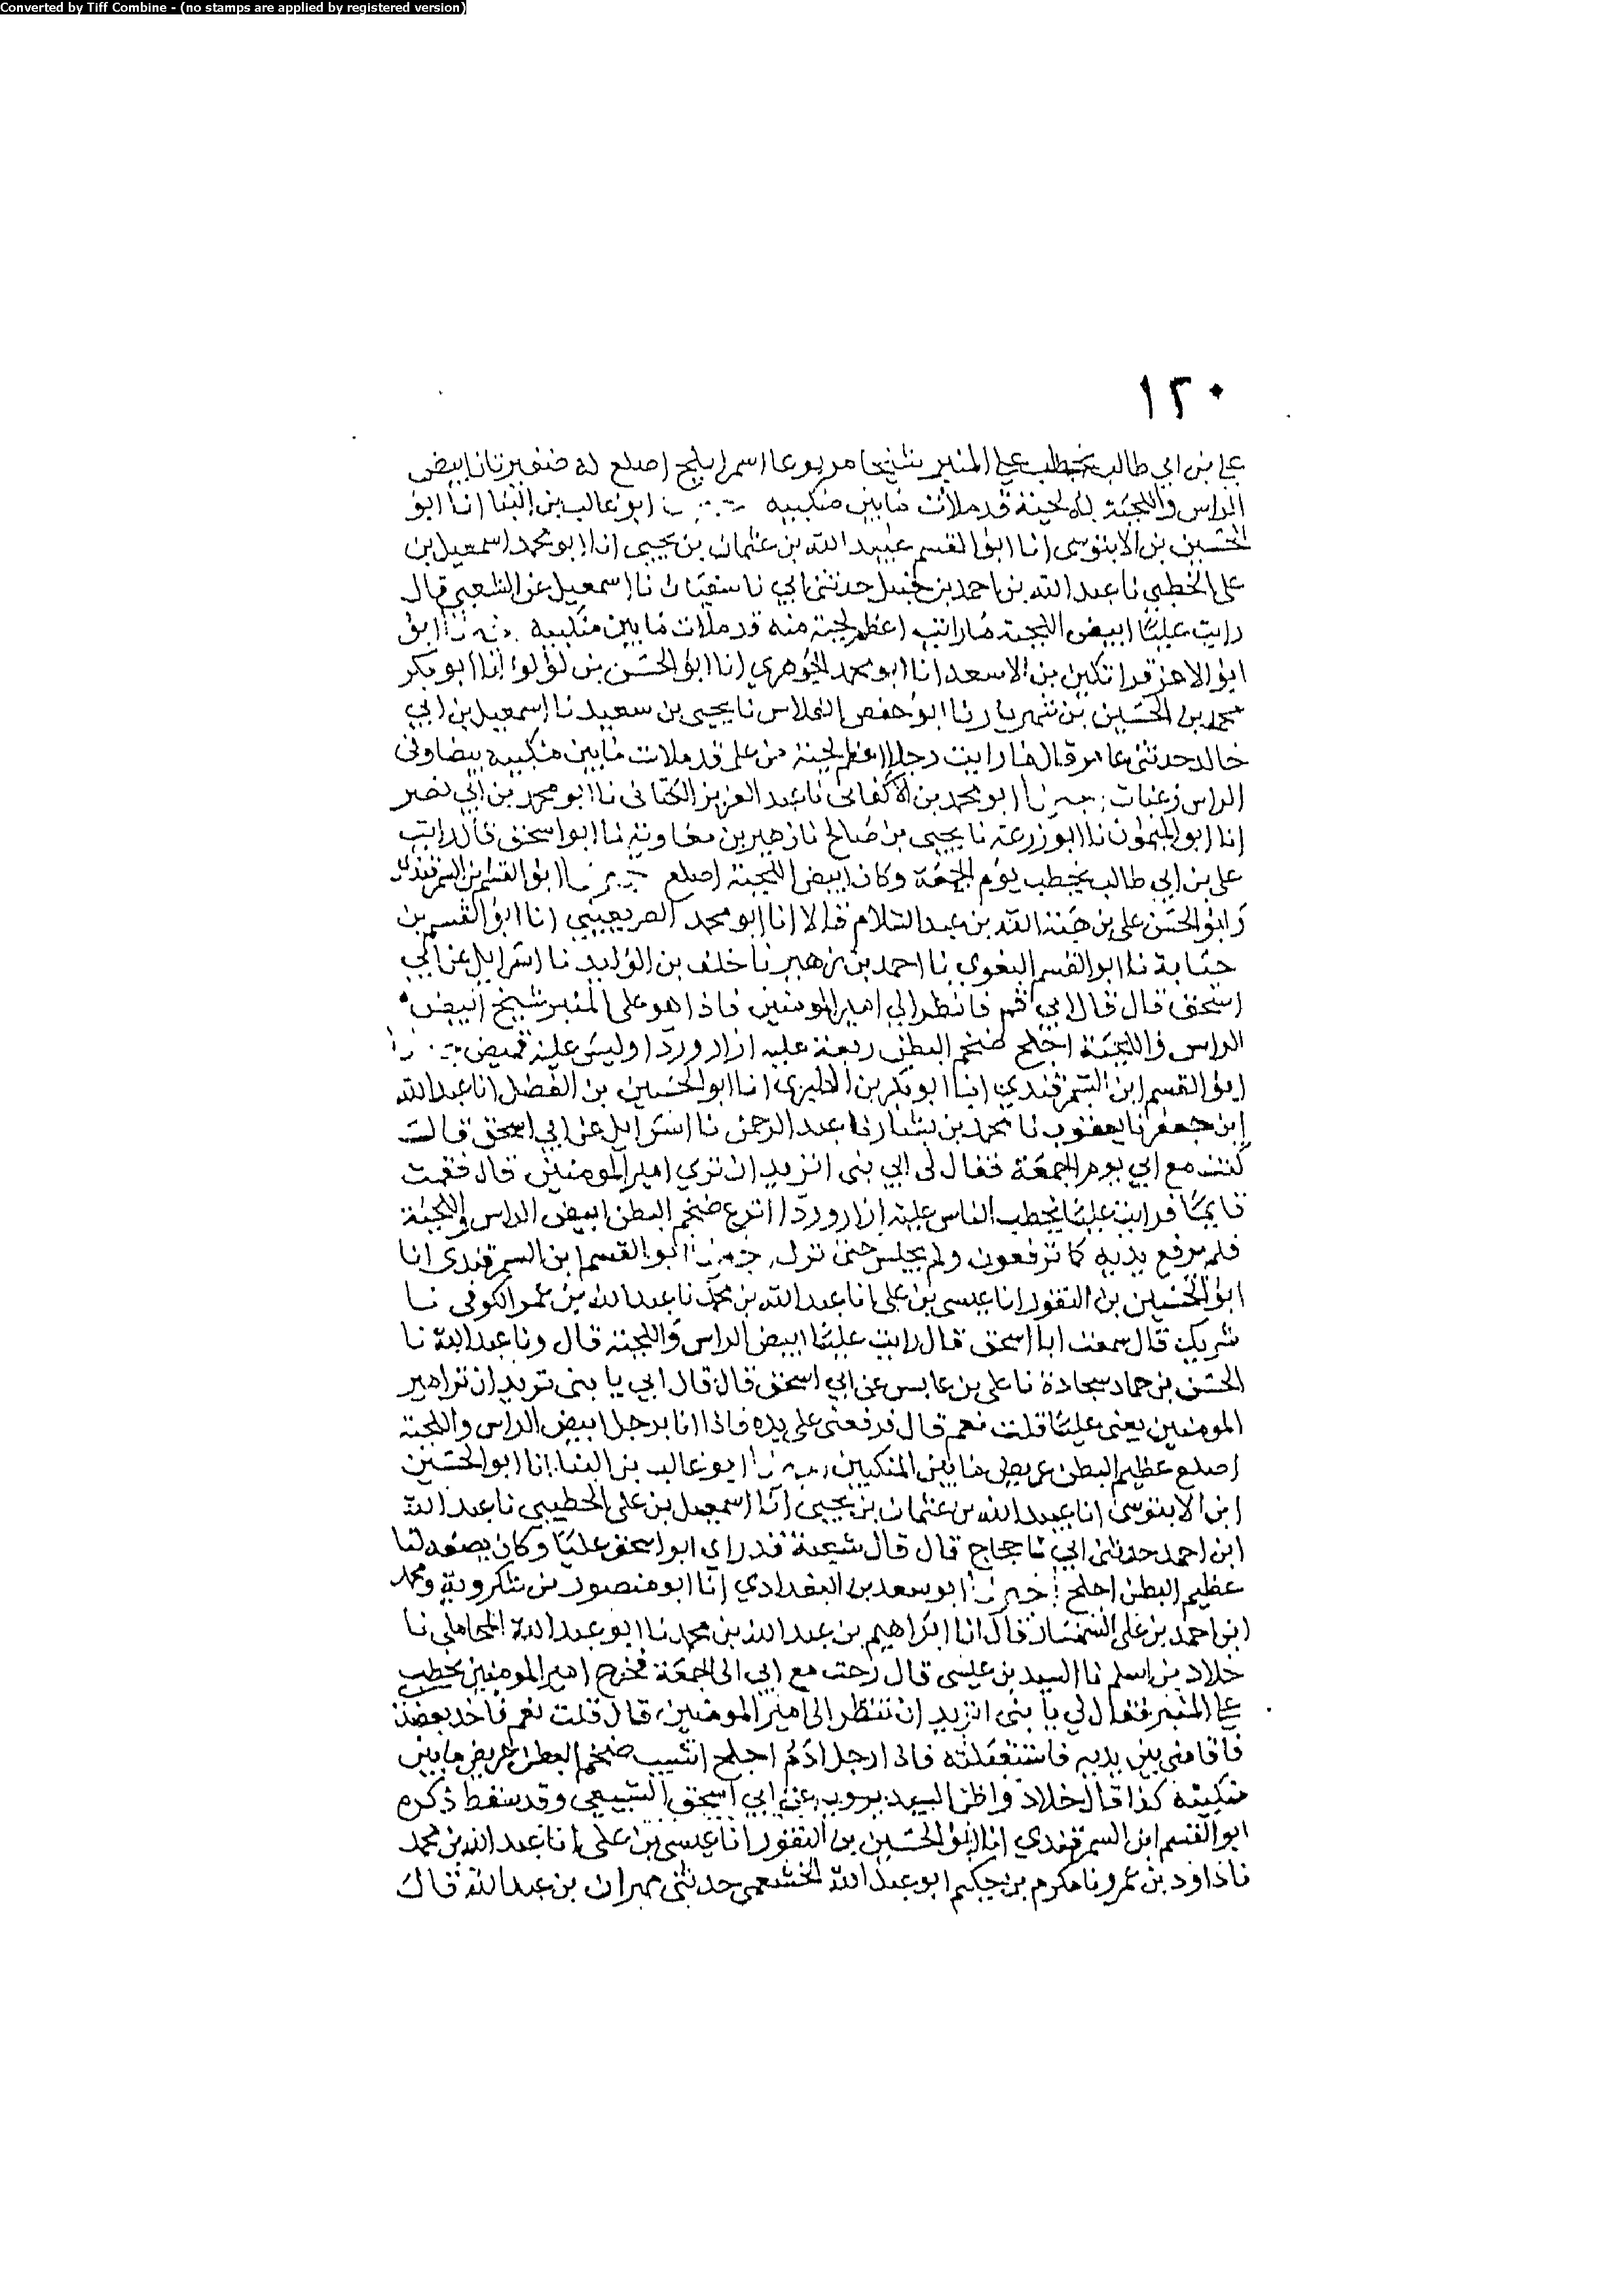 Converted by Tiff Combine - (no stamps are applied by registered version)
١٢٠
علي بن ابي طالب يخطب علي المنبر شيخا مربوعا اسمر ابلج اصلع له ضفيرتان ابيض
الراس واللحية له لحية قد ملات ما بين منكبيه ابو غالب بن البنا انا ابو
الحسين بن الابنوسي انا ابو القسم عبيد الله بن عثمان بن يحيى انا ابو محمد اسمعيل بن
على الخطبي نا عبد الله بن احمد بن حنبل حدثني ابي نا سفيان نا اسمعيل عن الشعبي قال
رايت عليا ابيض اللحية ما رايت اعظم لحية منه قد ملات ما بين منكبيه ابو
ابو الاعز قراتكين بن الاسعد انا ابو محمد الجوهري انا ابو الحسن بن لولو انا ابو بكر
محمد بن الحسين بن شهريار نا ابو حفص الفلاس نا يحيى بن سعيد نا اسمعيل بن ابي
خالد حدثني عامر قال ما رايت رجلا اعظم لحية من علي قد ملات ما بين منكبيه بيضا وفي
الراس زغبات ابو محمد بن الاكفاني نا عبد العزيز الكتاني نا ابو محمد بن ابي نصر
انا ابو الميمون نا ابو زرعة نا يحيى بن صالح نا زهير بن معاوية نا ابو اسحق قال رايت
على بن ابي طالب يخطب يوم الجمعة وكان ابيض اللحية اصلع ابو القسم بن السمرقندي
وابو الحسن علي بن هبة الله بن عبد السلام قالا انا ابو محمد الصريفيني انا ابو القسم بن
حبابة نا ابو القسم البغوي نا احمد بن زهير نا خلف بن الوليد نا اسرايل عن ابي
اسحق قال قال ابي قم فانظر الي امير المومنين فاذا هو على المنبر شيخ ابيض
الراس واللحية اجلح ضخم البطن ربعة عليه ازار وردا وليس عليه قميض
ابو القسم ابن السمرقندي انا ابو بكر بن الطبري انا ابو الحسين بن الفضل انا عبد الله
ابن جعفر نا يعقوب نا محمد بن بشار نا عبد الرحمن نا اسرايل عن ابي اسحق قال
كنت مع ابي يوم الجمعة فقال لى ابي بنى اتريد ان تري امير المومنين قال فقمت
قايما فرايت عليا يخطب الناس عليه ازار وردا انزع ضخم البطن ابيض الراس واللحية
فلم يرفع يديه كما ترفعون ولم يجلس حتى نزل ابو القسم ابن السمرقندي انا
ابو الحسين بن النقور انا عيسى بن علي انا عبد الله بن محمد نا عبد الله بن عمر الكوفي نا
شريك قال سمعت ابا اسحق قال رايت عليا ابيض الراس واللحية قال ونا عبد الله نا
الحسن بن حماد سجادة نا على بن عابس عن ابي اسحق قال قال ابي يا بنى تريد ان ترا امير
المومنين يعنى عليا قلت نعم قال فرفعنى على يده فاذا انا برجل ابيض الراس واللحية
اصلع عظيم البطن عريض ما بين المنكبين ابو غالب بن البنا انا ابو الحسين
ابن الابنوسى انا عبيد الله بن عثمان بن يحيى انا اسمعيل بن على الخطبي نا عبد الله
ابن احمد حدثني ابي نا حجاج قال قال شعبة قد راي ابو اسحق عليا وكان يصفه لنا
عظيم البطن اجلح ابو سعد بن البغدادي انا ابو منصور بن شكروية ومحمد
ابن احمد بن على السمسار قالا انا ابراهيم بن عبد الله بن محمد نا ابو عبد الله المحاملي نا
خلاد بن اسلم نا السيد بن عيسى قال رحت مع ابي الى الجمعة فخرج امير المومنين يخطب
علي المنبر فقال لي يا بنى اتريد ان تنظر الى امير المومنين قال قلت نعم فاخذ بعضد
فاقامني بين يديه فاستقبلته فاذا رجل ادم اجلح اشيب ضخم البطن عريض ما بين
منكبيه كذا قال خلاد واظن السيد يرويه عن ابي اسحق السبيعي وقد سقط ذكره
ابو القسم ابن السمرقندي انا ابو الحسين بن النقور انا عيسى بن على انا عبد الله بن محمد
نا داود بن عمرو نا مكرم بن حكيم ابو عبد الله الخثعمي حدثني مهران بن عبد الله قال